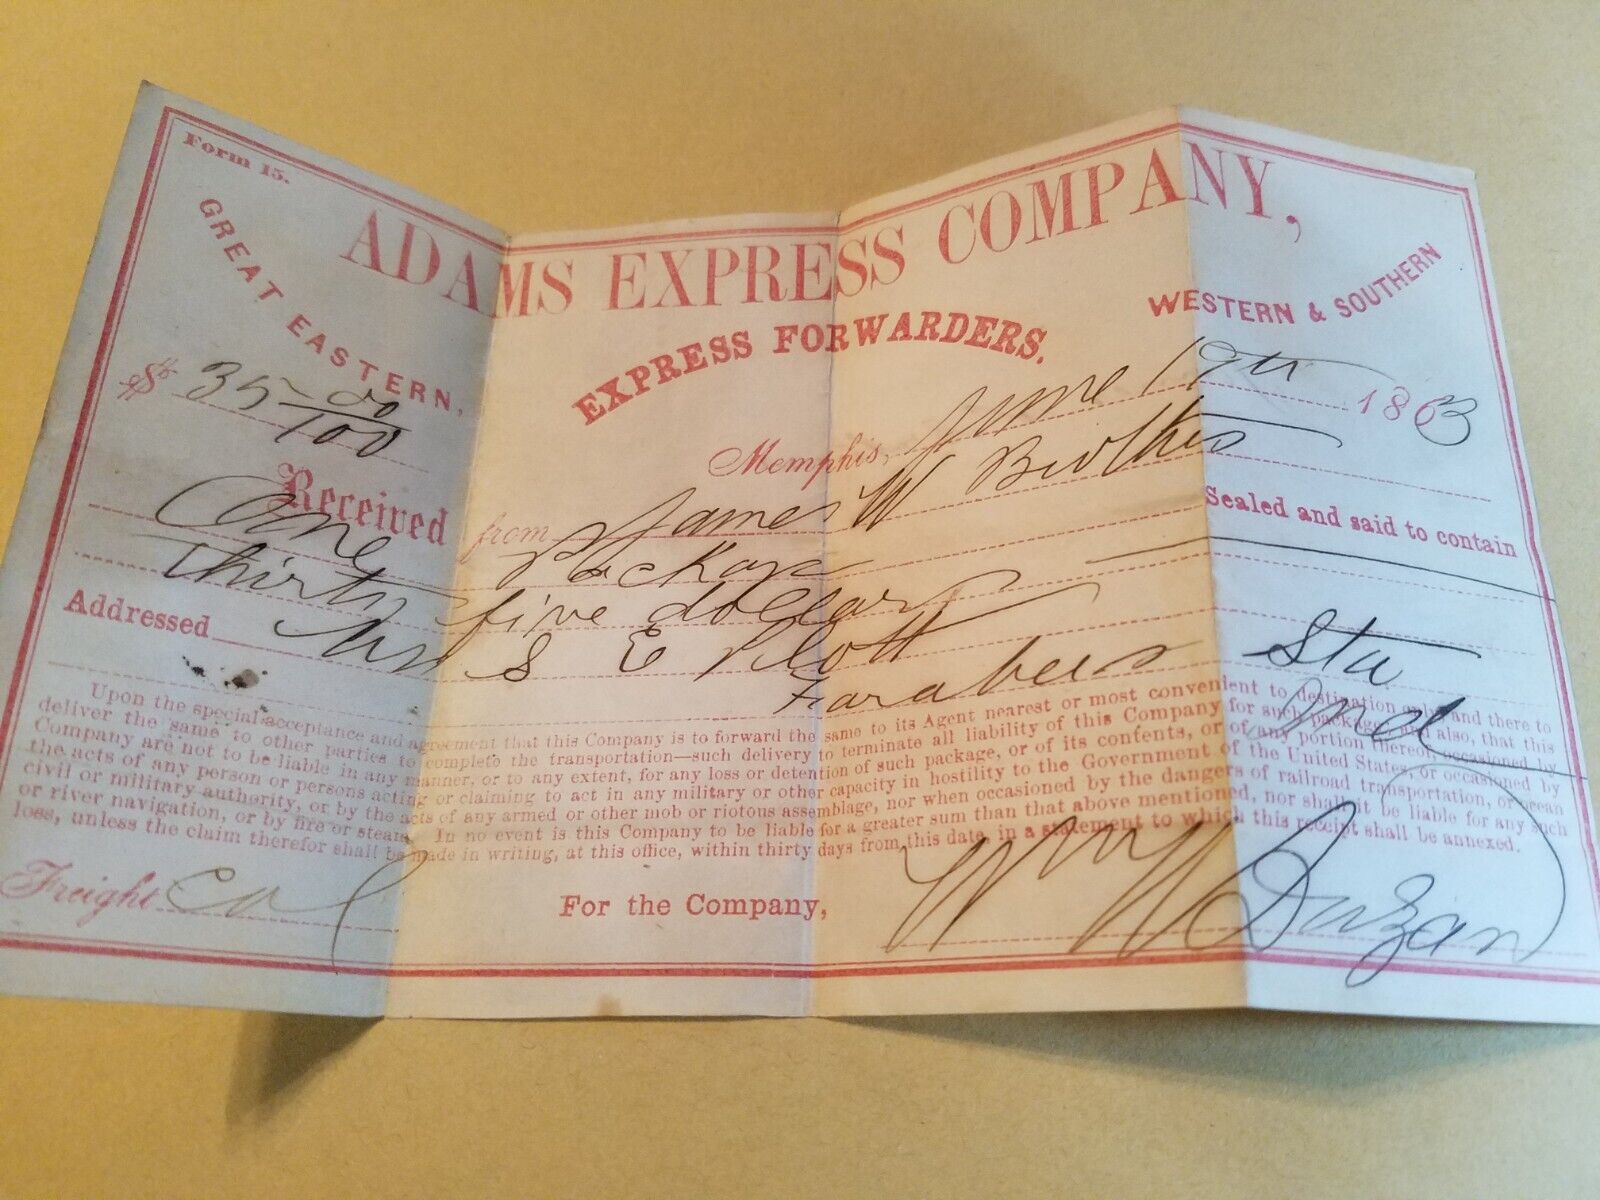 Form 15.
ADAMS EXPRESS COMPANY,
GREAT EASTERN,
WESTERN & SOUTHERN
EXPRESS FORWARDERS.
$ 35 00/100
Memphis, June 19th 1863
Received from James W Brothers
One Package Sealed and said to contain
Thirty five dollars
Addressed Mrs S E Plott
Farabees Sta
Ind
Upon the special acceptance and agreement that this Company is to forward the same to its Agent nearest or most convenient to destination only, and there to
deliver the same to other parties to complete the transportation—such delivery to terminate all liability of this Company for such package; and also, that this
Company are not to be liable in any manner, or to any extent, for any loss or detention of such package, or of its contents, or of any portion thereof, occasioned by
the acts of any person or persons acting or claiming to act in any military or other capacity in hostility to the Government of the United States, or occasioned by
civil or military authority, or by the acts of any armed or other mob or riotous assemblage, nor when occasioned by the dangers of railroad transportation, or ocean
or river navigation, or by fire or steam. In no event is this Company to be liable for a greater sum than that above mentioned, nor shall it be liable for any such
loss, unless the claim therefor shall be made in writing, at this office, within thirty days from this date, in a statement to which this receipt shall be annexed.
Freight
For the Company,